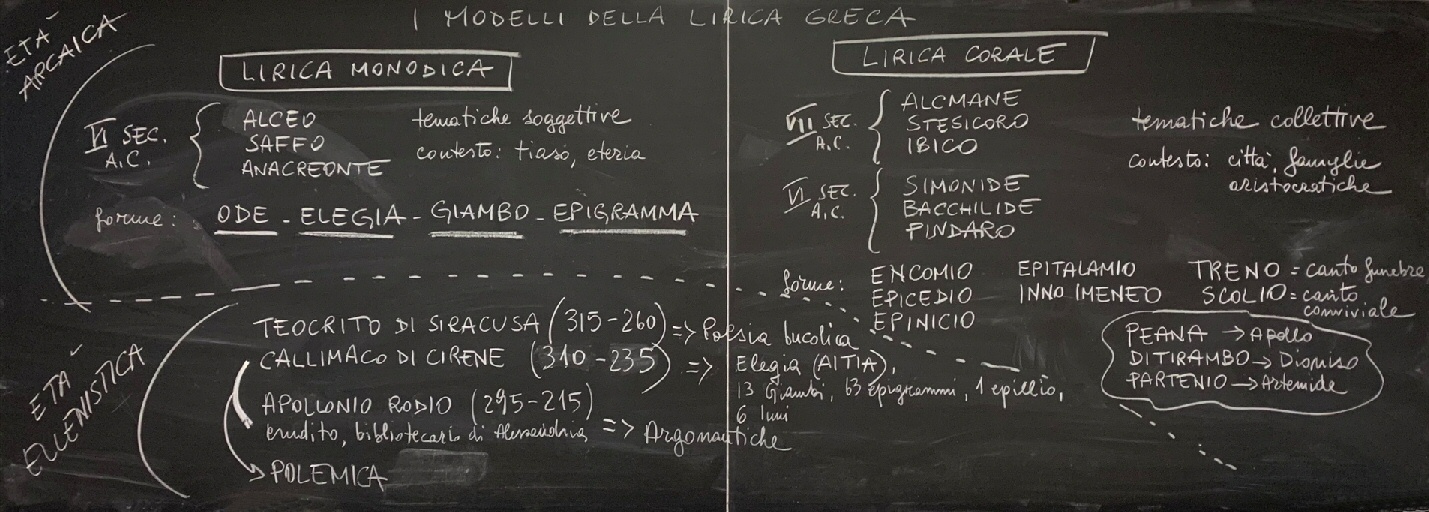 I MODELLI DELLA LIRICA GRECA
ETÀ
ARCAICA
LIRICA MONODICA
VI SEC.
A.C.
ALCEO
SAFFO
ANACREONTE
tematiche soggettive
contesto: tiaso, eteria
forme: ODE - ELEGIA - GIAMBO - EPIGRAMMA
LIRICA CORALE
VII SEC.
A.C.
ALCMANE
STESICORO
IBICO
VI SEC.
A.C.
SIMONIDE
BACCHILIDE
PINDARO
tematiche collettive
contesto: città, famiglie
aristocratiche
forme:
ENCOMIO
EPICEDIO
EPINICIO
EPITALAMIO
INNO IMENEO
TRENO = canto funebre
SCOLIO = canto
conviviale
PEANA → Apollo
DITIRAMBO → Dioniso
PARTENIO → Artemide
ETÀ
ELLENISTICA
TEOCRITO DI SIRACUSA (315-260) => Poesia bucolica
CALLIMACO DI CIRENE (310-235) => Elegia (AITIA),
13 Giambi, 63 epigrammi, 1 epillio,
6 Inni
APOLLONIO RODIO (295-215)
erudito, bibliotecario di Alessandria => Argonautiche
→ POLEMICA